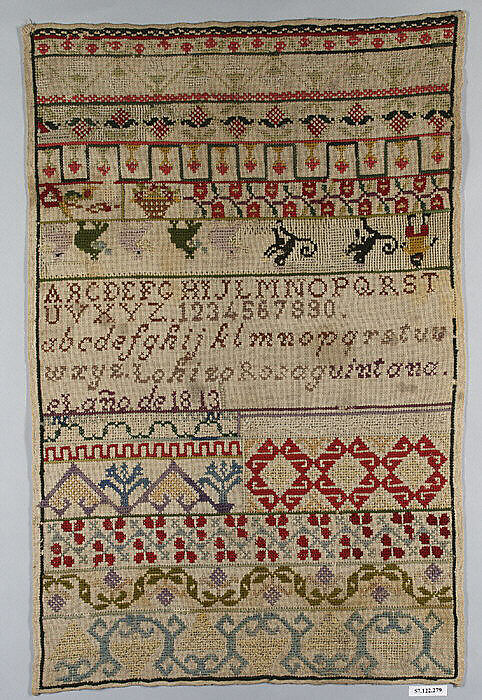 ABCDEFG HIJLMNOPQRST
UVXYZ.1234567890.
abcdefghij klmnopqrstuv
wxyz Lo hizo Rosa quintana.
el año de 1813
57.122.279